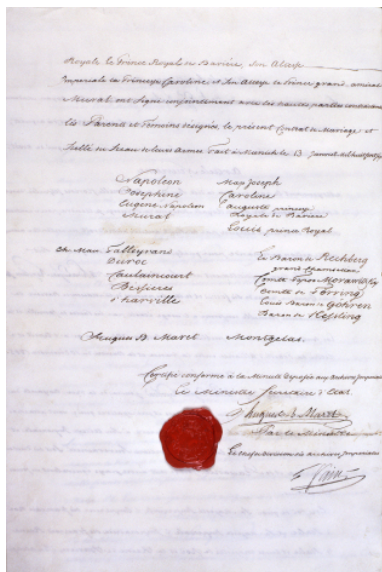 Royale le Prince Royal de Bavière, Son Altesse
Imperiale la Princesse Caroline et Son Altesse le Prince grand amiral
Murat ont signé conjointement avec les hautes parties
les Parens et Témoins désignés, le présent Contrat de Mariage, et
Scellé du Sceau de leurs Armes. Fait à Munich le 13 janvier
Napoleon
Joséphine
Eugène Napoléon
Murat
Max Joseph
Caroline
Auguste princesse
Royale de Bavière
Louis prince Royal
Ch. Mau. Talleyrand
Duroc
Caulaincourt
Bessieres
d'harville
Le Baron de Rechberg
grand Chancelier
Comte Topor Morawitzky
Comte de Törring
Louis Baron de Gohren
Baron de Kesling
Hugues B. Maret Montgelas
Copie conforme à la Minute déposée aux archives Impériales
Le Ministre Secretaire d'Etat
Hugues B. Maret
Par le Ministre
aux archives Impériales